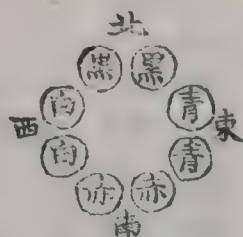 北
黒 黒
白 青
西 東
白 青
赤 赤
南